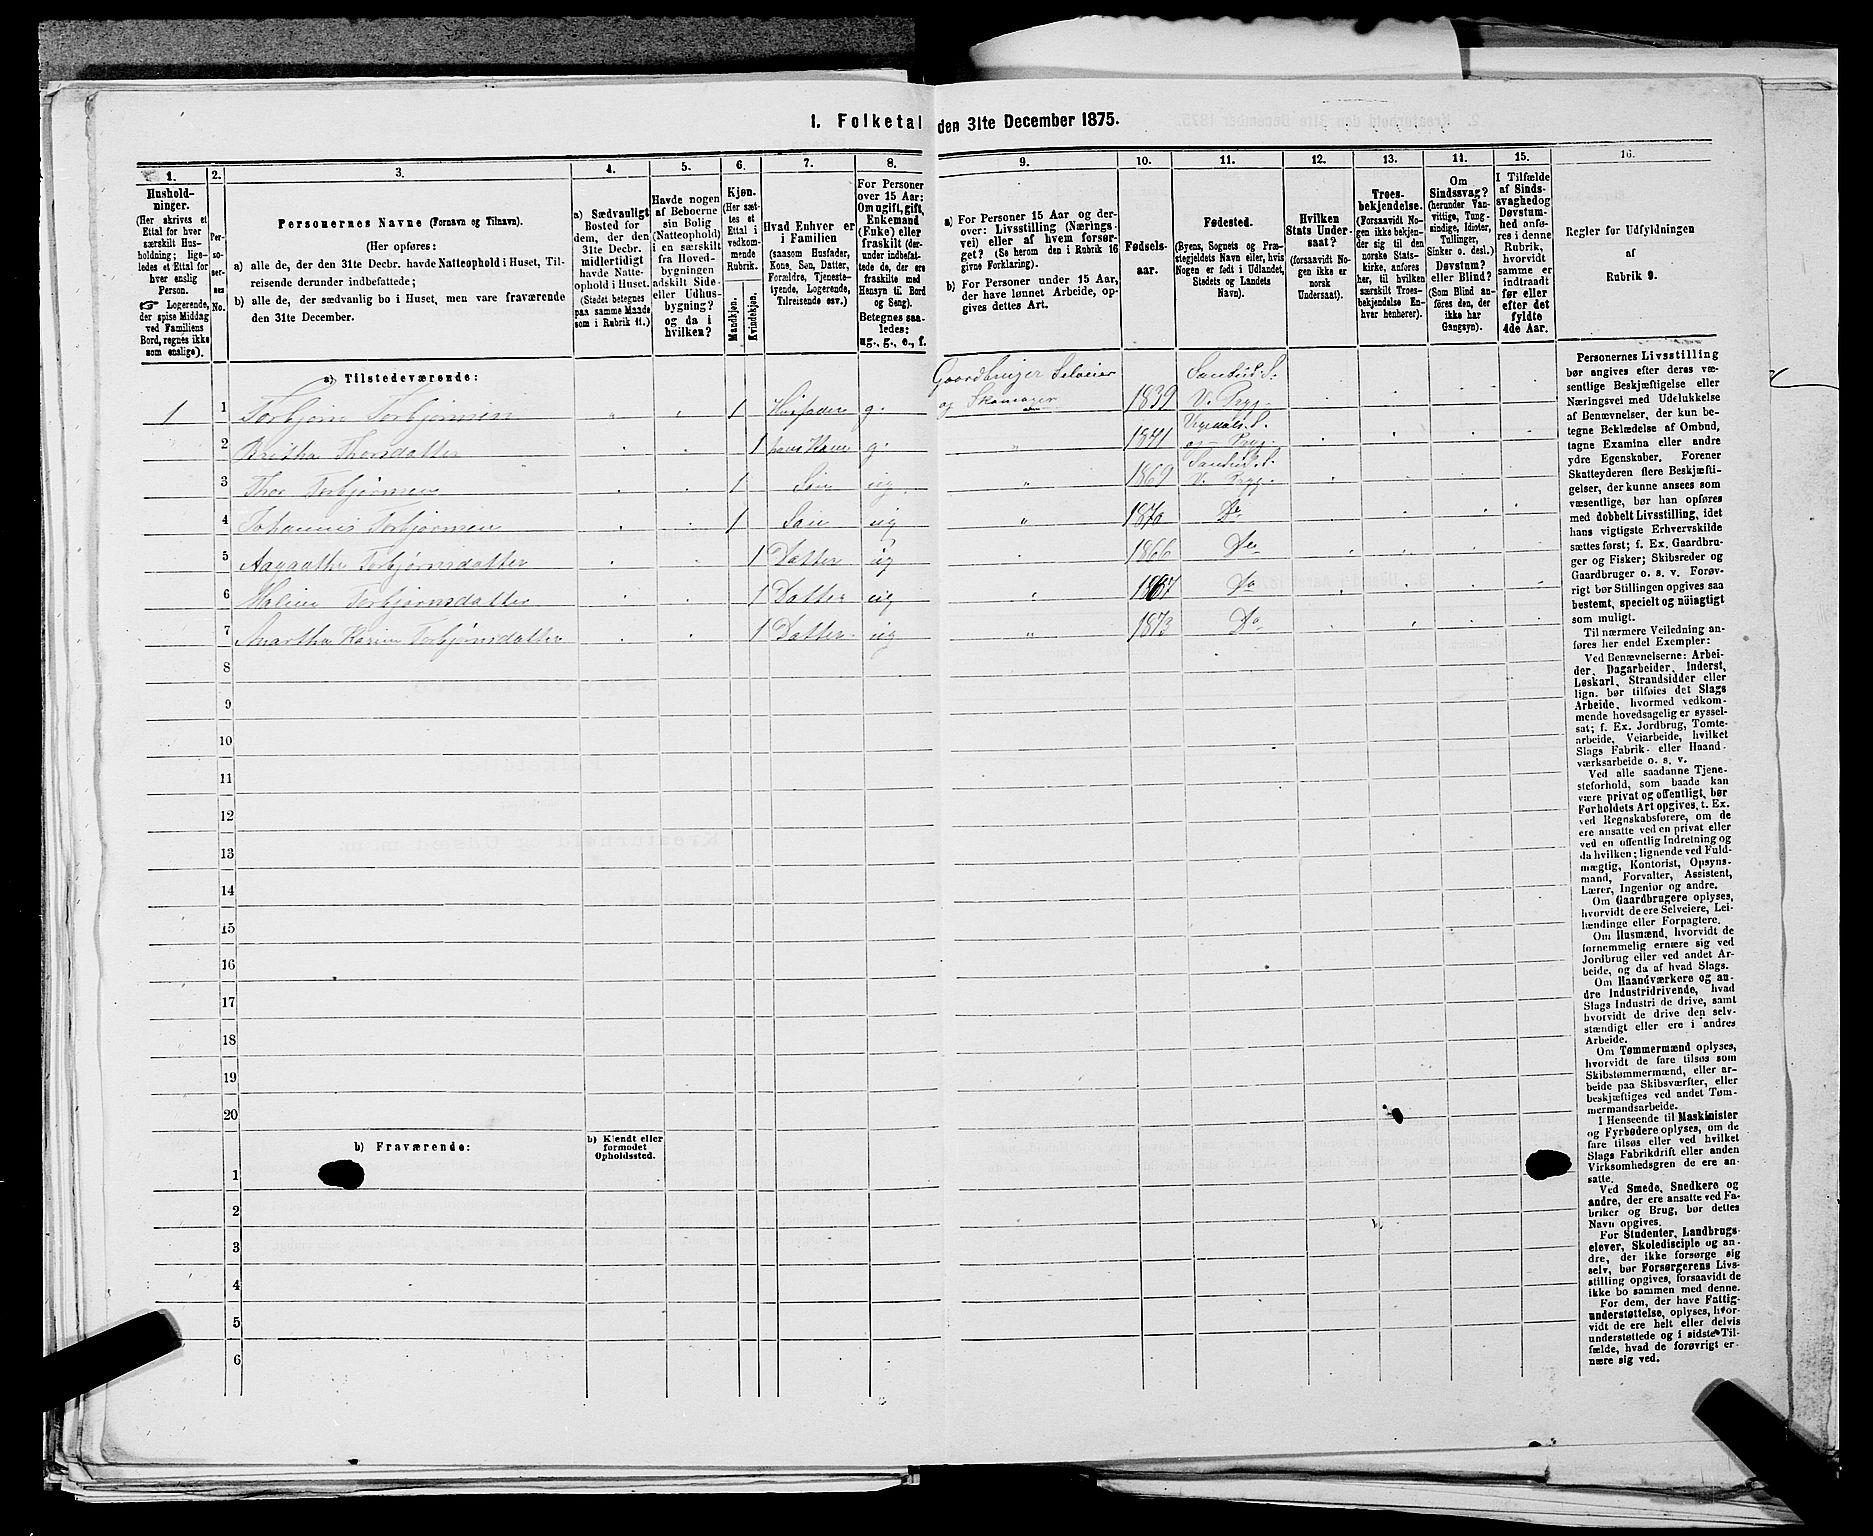 1. Folketal den 31te December 1875.
1.
Hushold-
ninger.
(Her skrives et
Ettal for hver
særskilt Hus-
holdning; lige-
ledes et Ettal for
hver enslig
Person.
☞ Logerende,
der spise Middag
ved Familiens
Bord, regnes ikke
som enslige).
2.
No.
3.
Personernes Navne (Fornavn og Tilnavn).
(Her opføres:
a) alle de, der den 31te Decbr. havde Natteophold i Huset, Til-
reisende derunder indbefattede;
b) alle de, der sædvanlig bo i Huset, men vare fraværende
den 31te December.
4.
a) Sædvanligt
Bosted for
dem, der den
31te Decbr.
midlertidigt
havde Natte-
ophold i Huset.
(Stedet betegnes
paa samme Maade
som i Rubrik 11.)
5.
Havde nogen
af Beboerne
sin Bolig
(Natteophold)
i en særskilt
fra Hoved-
bygningen
adskilt Side-
eller Udhus-
bygning?
og da i
hvilken?
6.
Kjøn.
(Her sæt-
tes et
Ettal i
vedkom-
mende
Rubrik.
Mandkjøn.
Kvindekjøn.
7.
Hvad Enhver er
i Familien
(saasom Husfader,
Kone, Søn, Datter,
Forældre, Tjeneste-
tyende, Logerende,
Tilreisende osv.)
8.
For Personer
over 15 Aar:
Om ugift, gift,
Enkemand
(Enke) eller
fraskilt (der-
under indbefat-
tede de, der ere
fraskilte med
Hensyn til Bord
og Seng).
Betegnes saa-
ledes:
ug., g., e., f.
9.
a) For Personer 15 Aar og der-
over: Livsstilling (Nærings-
vei) eller af hvem forsør-
get? (Se herom den i Rubrik 16
givne Forklaring).
b) For Personer under 15 Aar,
der have lønnet Arbeide, op-
gives dettes Art.
10.
Fødsels-
aar.
11.
Fødested.
(Byens, Sognets og Præ-
stegjeldets Navn eller, hvis
Nogen er født i Udlandet,
Stedets og Landets
Navn).
12.
Hvilken
Stats Under-
saat?
(forsaavidt No-
gen ikke er
norsk
Undersaat).
13.
Troes-
bekjendelse.
(Forsaavidt No-
gen ikke bekjen-
der sig til den
norske Stats-
kirke, anføres
her, til hvilken
særskilt Troes-
bekjendelse En-
hver henhører).
14.
Om
Sindssvag?
(herunder Van-
vittige, Tung-
sindige, Idioter,
Tullinger,
Sinker o. desl.)
Døvstum?
eller Blind?
(Som Blind an-
føres den, der
ikke har
Gangsyn).
15.
I Tilfælde
af Sinds-
svaghed og
Døvstum-
hed anfø-
res i denne
Rubrik,
hvorvidt
samme er
indtraadt
før eller
efter det
fyldte
4de Aar.
16.
Regler for Udfyldningen
af
Rubrik 9.
a) Tilstedeværende:
Gaardbruger Selveier Sandeid S.
1 1 Torbjørn Torbjørnsen 1 Husfader g. og Skomager 1839 V. Prgj.
Vigedals S.
2 Britha Thorsdatter 1 hans Kone g. 1841 og Prgj.
Sandeid S.
3 Thor Torbjørnsen 1 Søn ug. 1869 V. Prgj.
4 Johannes Torbjørnsen 1 Søn ug 1870 Do
5 Aagaathe Torbjørnsdatter 1 Datter ug 1866 Do
6 Malene Torbjørnsdatter 1 Datter ug 1867 Do
7 Martha Karine Torbjørnsdatter 1 Datter ug 1873 Do
8
9
10
11
12
13
14
15
16
17
18
19
20
b) Fraværende:
b) Kjendt eller
formodet
Opholdssted.
1
2
3
4
5
6
Personernes Livsstilling
bør angives efter deres væ-
sentlige Beskjæftigelse eller
Næringsvei med Udelukkelse
af Benævnelser, der kun be-
tegne Beklædelse af Ombud,
tagne Examina eller andre
ydre Egenskaber. Forener
Skatteyderen flere Beskjæfti-
gelser, der kunne ansees som
væsentlige, bør han opføres
med dobbelt Livsstilling, idet
hans vigtigste Erhvervskilde
sættes først; f. Ex. Gaardbru-
ger og Fisker; Skibsreder og
Gaardbruger o. s. v. Forøv-
rigt bør Stillingen opgives saa
bestemt, specielt og nøiagtigt
som muligt.
Til nærmere Veiledning an-
føres her endel Exempler:
Ved Benævnelserne: Arbei-
der, Dagarbeider, Inderst,
Løskarl, Strandsidder eller
lign. bør tilføies det Slags
Arbeide, hvormed vedkom-
mende hovedsagelig er syssel-
sat; f. Ex. Jordbrug, Tomte-
arbeide, Veiarbeide, hvilket
Slags Fabrik- eller Haand-
værksarbeide o. s. v.
Ved alle saadanne Tjene-
steforhold, som baade kan
være privat og offentligt, bør
Forholdets Art opgives, t. Ex.
ved Regnskabsførere, om de
ere ansatte ved en privat eller
ved en offentlig Indretning og
da hvilken; lignende ved Fuld-
mægtig, Kontorist, Opsyns-
mand, Forvalter, Assistent,
Lærer, Ingeniør og andre.
Om Gaardbrugere oplyses,
hvorvidt de ere Selveiere, Lei-
lændinge eller Forpagtere.
Om Husmænd, hvorvidt de
fornemmelig ernære sig ved
Jordbrug eller ved andet Ar-
beide, og da af hvad Slags.
Om Haandværkere og an-
dre Industridrivende, hvad
Slags Industri de drive, samt
hvorvidt de drive den selv-
stændigt eller ere i andres
Arbeide.
Om Tømmermænd oplyses,
hvorvidt de fare tilsøs som
Skibstømmermænd, eller ar-
beide paa Skibsværfter, eller
beskjæftiges ved andet Tøm-
mermandsarbeide.
I Henseende til Maskinister
og Fyrbødere oplyses, om de
fare tilsøs eller ved hvilket
Slags Fabrikdrift eller anden
Virksomhedsgren de ere an-
satte.
Ved Smede, Snedkere og
andre, der ere ansatte ved Fa-
briker og Brug, bør dettes
Navn opgives.
For Studenter, Landbrugs-
elever, Skoledisciple og an-
dre, der ikke forsørge sig
selv, bør Forsørgerens Livs-
stilling opgives, forsaavidt de
ikke bo sammen med denne.
For dem, der have Fattig-
understøttelse, oplyses, hvor-
vidt de ere helt eller delvis
understøttede og i sidste Til-
fælde, hvad de forøvrigt er-
nære sig ved.